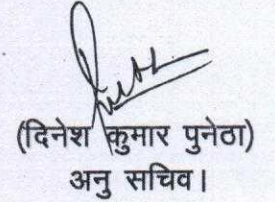 (दिनेश कुमार पुनेठा)
अनु सचिव।